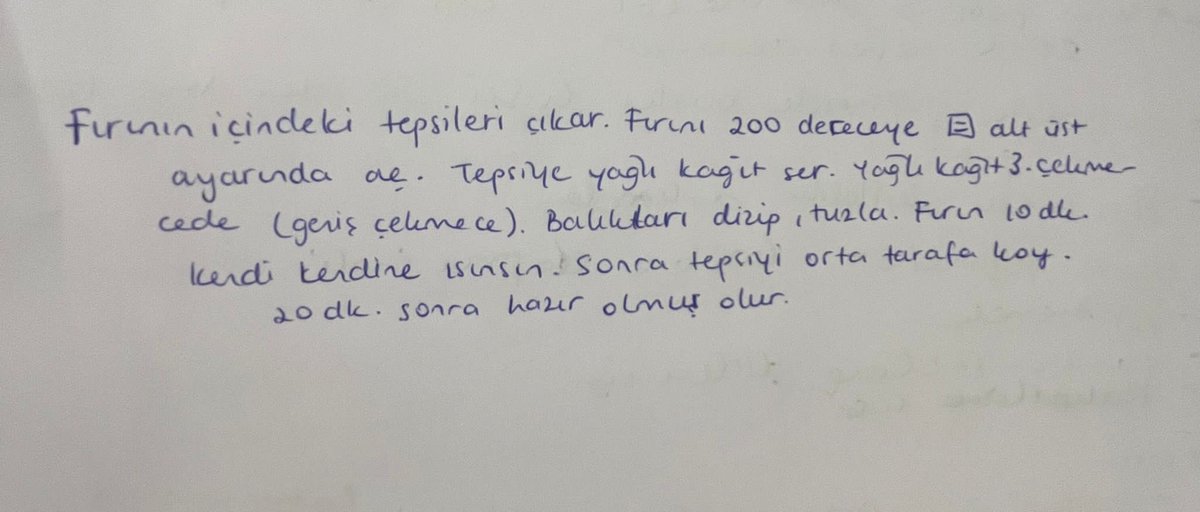 Fırının içindeki tepsileri çıkar. Fırını 200 dereceye alt üst
ayarında aç. Tepsiye yağlı kağıt ser. Yağlı kağıt 3. çekme-
cede (geniş çekmece). Balıkları dizip, tuzla. Fırın 10 dk.
kendi kendine ısınsın. Sonra tepsiyi orta tarafa koy.
20 dk. sonra hazır olmuş olur.